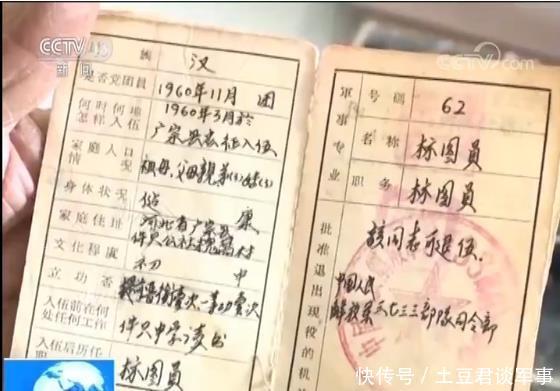 CCTV 13
新闻
CCTV.com
族 汉
是否党团員 1960年11月 团
何时何地 1960年3月於
怎样入伍 广宗县 征入伍
家庭人口 祖母,父母親弟(3)妹(3)
情况
身体状况 健 康
家庭住址 河北省广宗县
件只公社 村
文化程度 初 中
立功否 壹次一等功壹次
入伍前在何
处任何工作 件只中学读书
入伍后历任
职 标图員
军事专业
号碼 62
名称 标图員
职务 标图員
批准退出现役的机
该同志可退伍.
中国人民
解放军三七三三部队司令部
快传号/土豆君谈军事